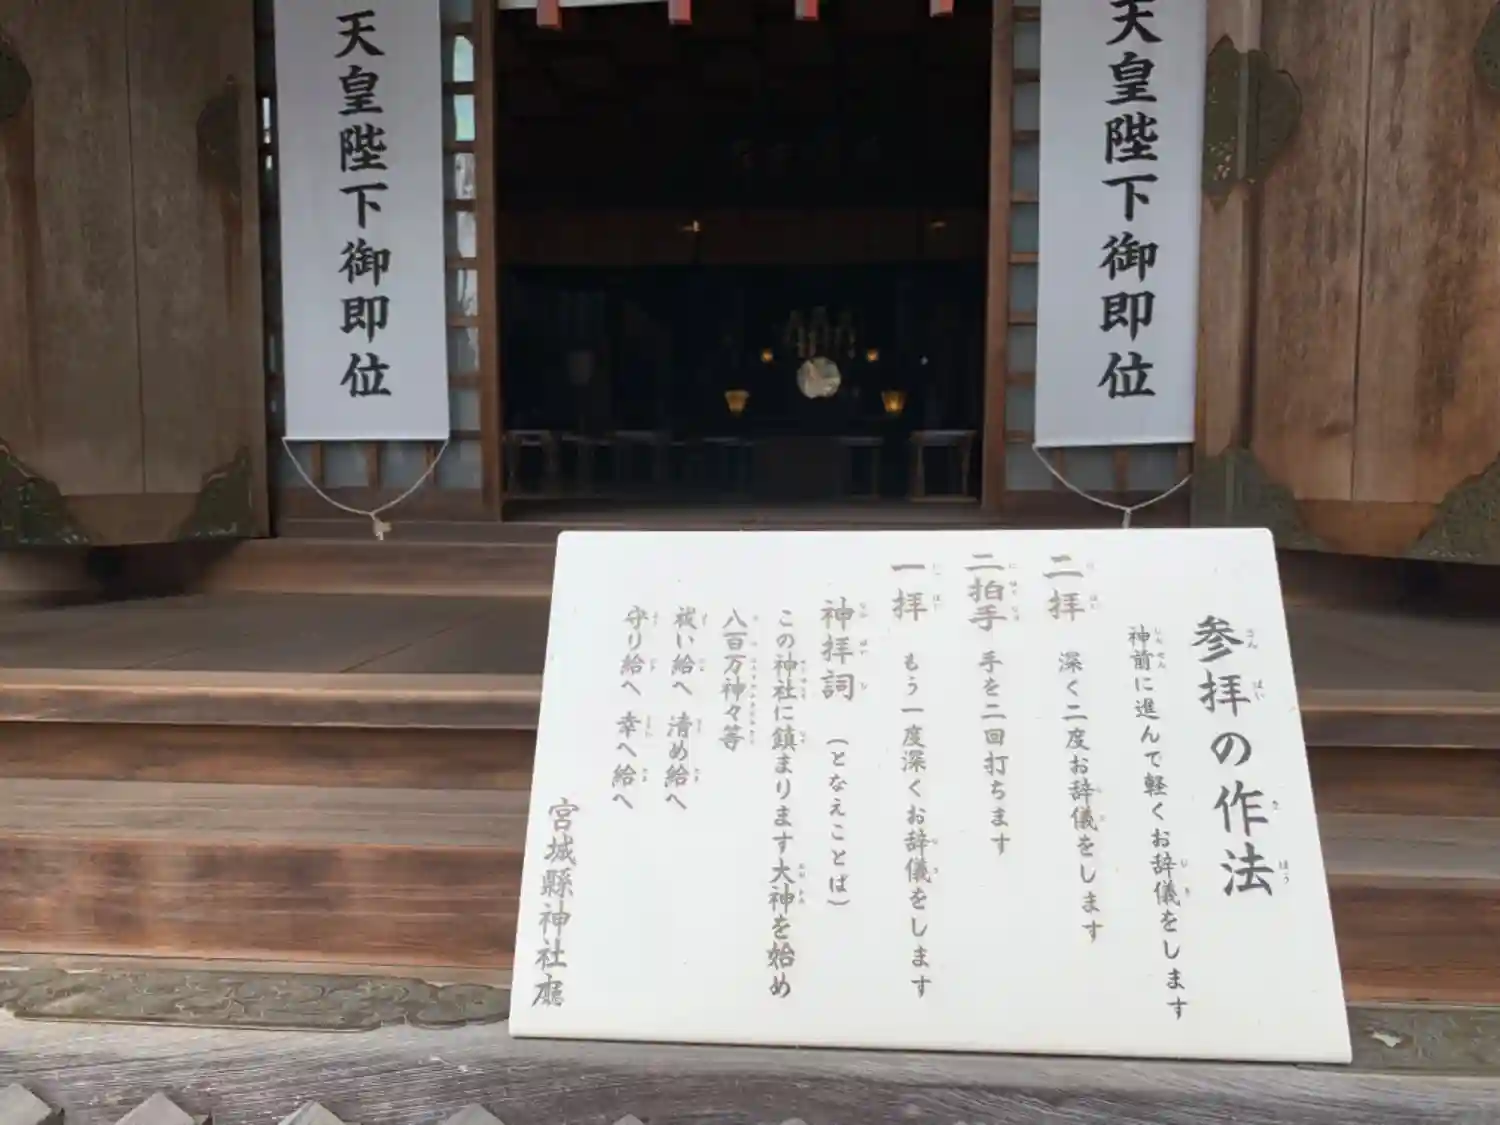 天皇陛下御即位
天皇陛下御即位
参拝の作法
神前に進んで軽くお辞儀をします
二拝 深く二度お辞儀をします
二拍手 手を二回打ちます
一拝 もう一度深くお辞儀をします
神拝詞 (となえことば)
この神社に鎮まります大神を始め
八百万神々等
祓い給へ 清め給へ
守り給へ 幸へ給へ
宮城縣神社廰